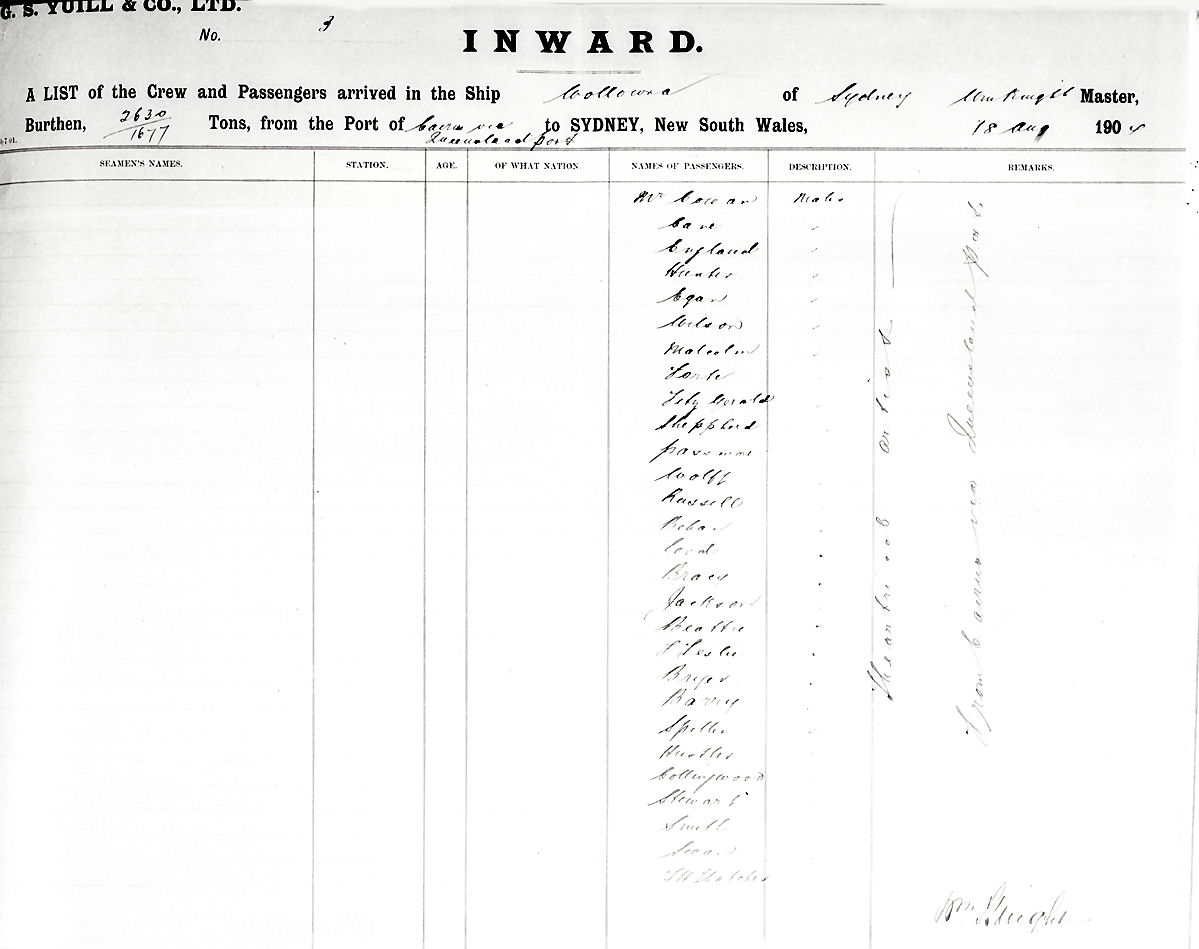 G. S. YUILL & CO., LTD.
No. 3
INWARD.
A LIST of the Crew and Passengers arrived in the Ship Wollowra of Sydney Wm Knight Master,
Burthen, 2630/1677 Tons, from the Port of Cairns via Queensland port to SYDNEY, New South Wales, 18 Aug 1904
SEAMEN'S NAMES. STATION. AGE. OF WHAT NATION. NAMES OF PASSENGERS. DESCRIPTION. REMARKS.
Mr Cowan Male
Cane "
England "
Hunter "
Egan "
Wilson "
Malcolm "
Forte
Fitz Gerald
Shepherd
Passmore
Wolff
Russell
Rehan
Cood
Jackson
Beattie
Leslie
Barry
Spiller
Collingwood
Stewart
Smith
Swan
Thatcher
Theatrical artist
From Cairns via Queensland port
Wm Knight